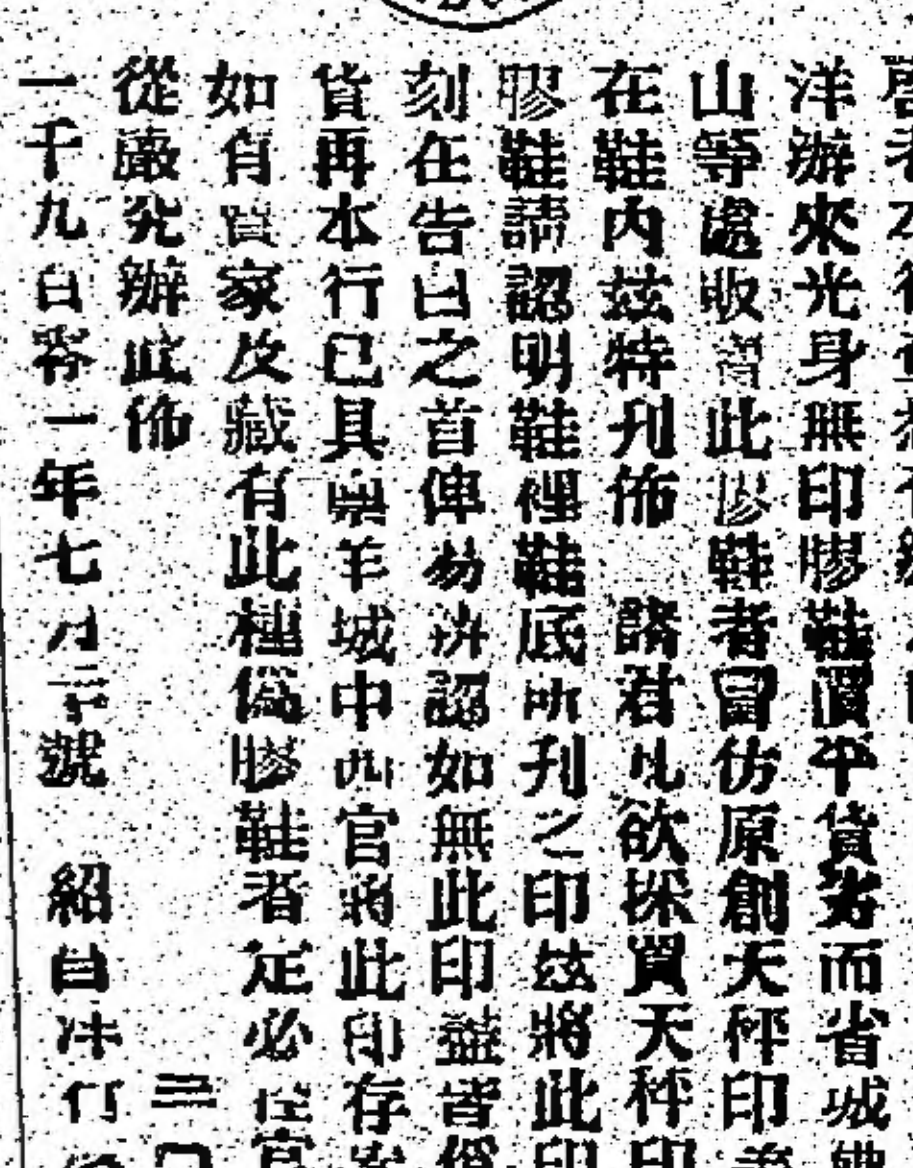 啓者本行
洋辦來光身無印膠鞋價平貨劣而省城佛
山等處收買此膠鞋者冒仿原創天秤印
在鞋內茲特刊佈 諸君凡欲採買天秤印
膠鞋請認明鞋裡鞋底所刊之印茲將此印
刻在告白之首俾易辨認如無此印盡皆僞
貨再本行已具稟羊城中西官將此印存案
如有買家及藏有此種僞膠鞋者定必控官
從嚴究辦此佈
一千九百零一年七月號 紹昌洋行